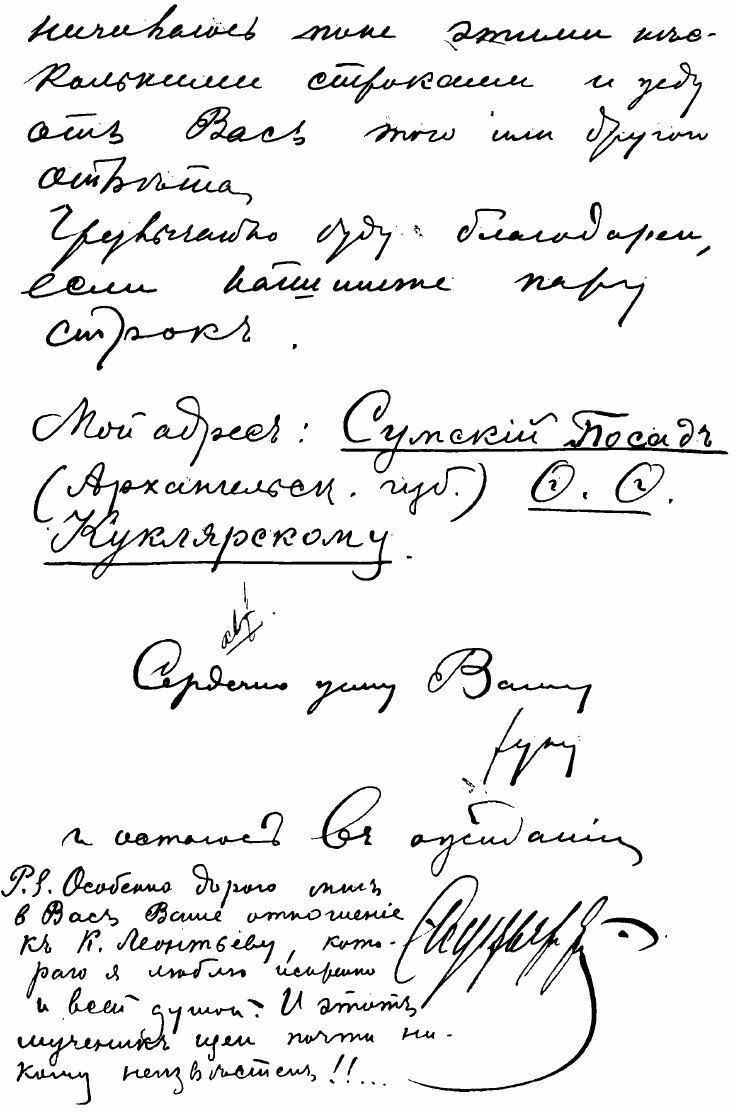 ничиваюсь пока этими нѣс-
колькими строками и жду
отъ Васъ того или другого
отвѣта.
Чрезвычайно буду благодарен,
если напишите пару
строкъ.
Мой адресъ: Сумскій Посадъ
(Архангельск. губ.) Ѳ. Ѳ.
Куклярскому.
Сердечно жму Вашу
руку
и остаюсь въ ожиданіи
P.S. Особенно дорого мнѣ
в Васъ Ваше отношеніе
къ К. Леонтьеву, кото-
раго я люблю искренно
и всей душой. И этотъ
мученикъ идеи почти ни-
кому неизвѣстенъ!!...